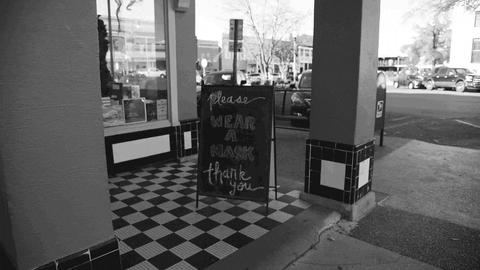 please
WEAR
A
MASK
thank
you